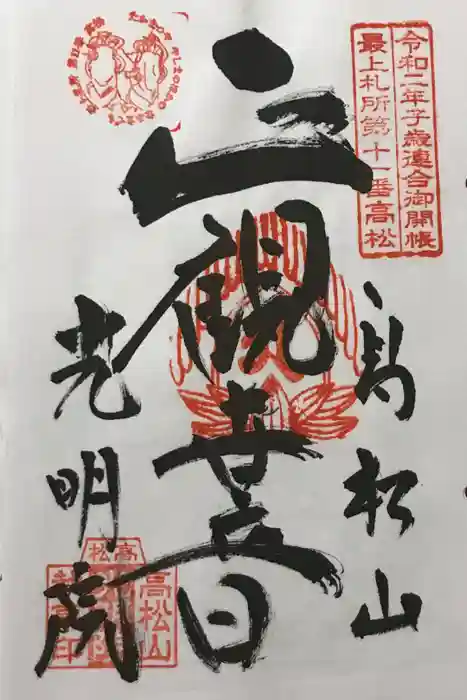 令和二年子歳連合御開帳
最上札所第十一番高松
高松山
正観世音
光明院
高松
高松山